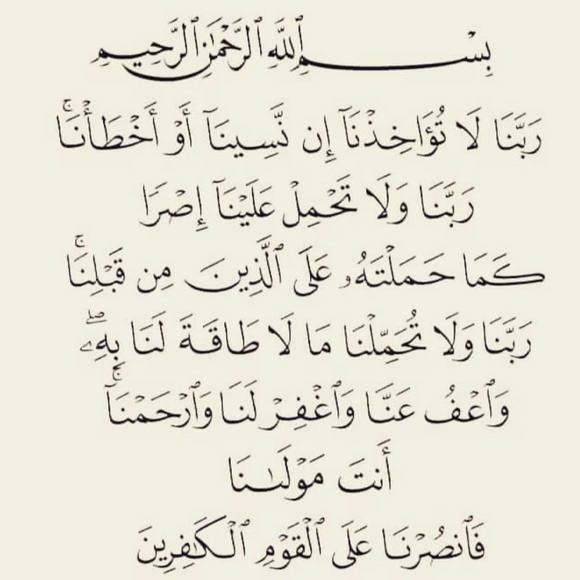 بِسْمِ ٱللَّهِ ٱلرَّحْمَٰنِ ٱلرَّحِيمِ
رَبَّنَا لَا تُؤَاخِذْنَآ إِن نَّسِينَآ أَوْ أَخْطَأْنَاۚ
رَبَّنَا وَلَا تَحْمِلْ عَلَيْنَآ إِصْرًا
كَمَا حَمَلْتَهُۥ عَلَى ٱلَّذِينَ مِن قَبْلِنَاۚ
رَبَّنَا وَلَا تُحَمِّلْنَا مَا لَا طَاقَةَ لَنَا بِهِۦۖ
وَٱعْفُ عَنَّا وَٱغْفِرْ لَنَا وَٱرْحَمْنَآۚ
أَنتَ مَوْلَىٰنَا
فَٱنصُرْنَا عَلَى ٱلْقَوْمِ ٱلْكَٰفِرِينَ